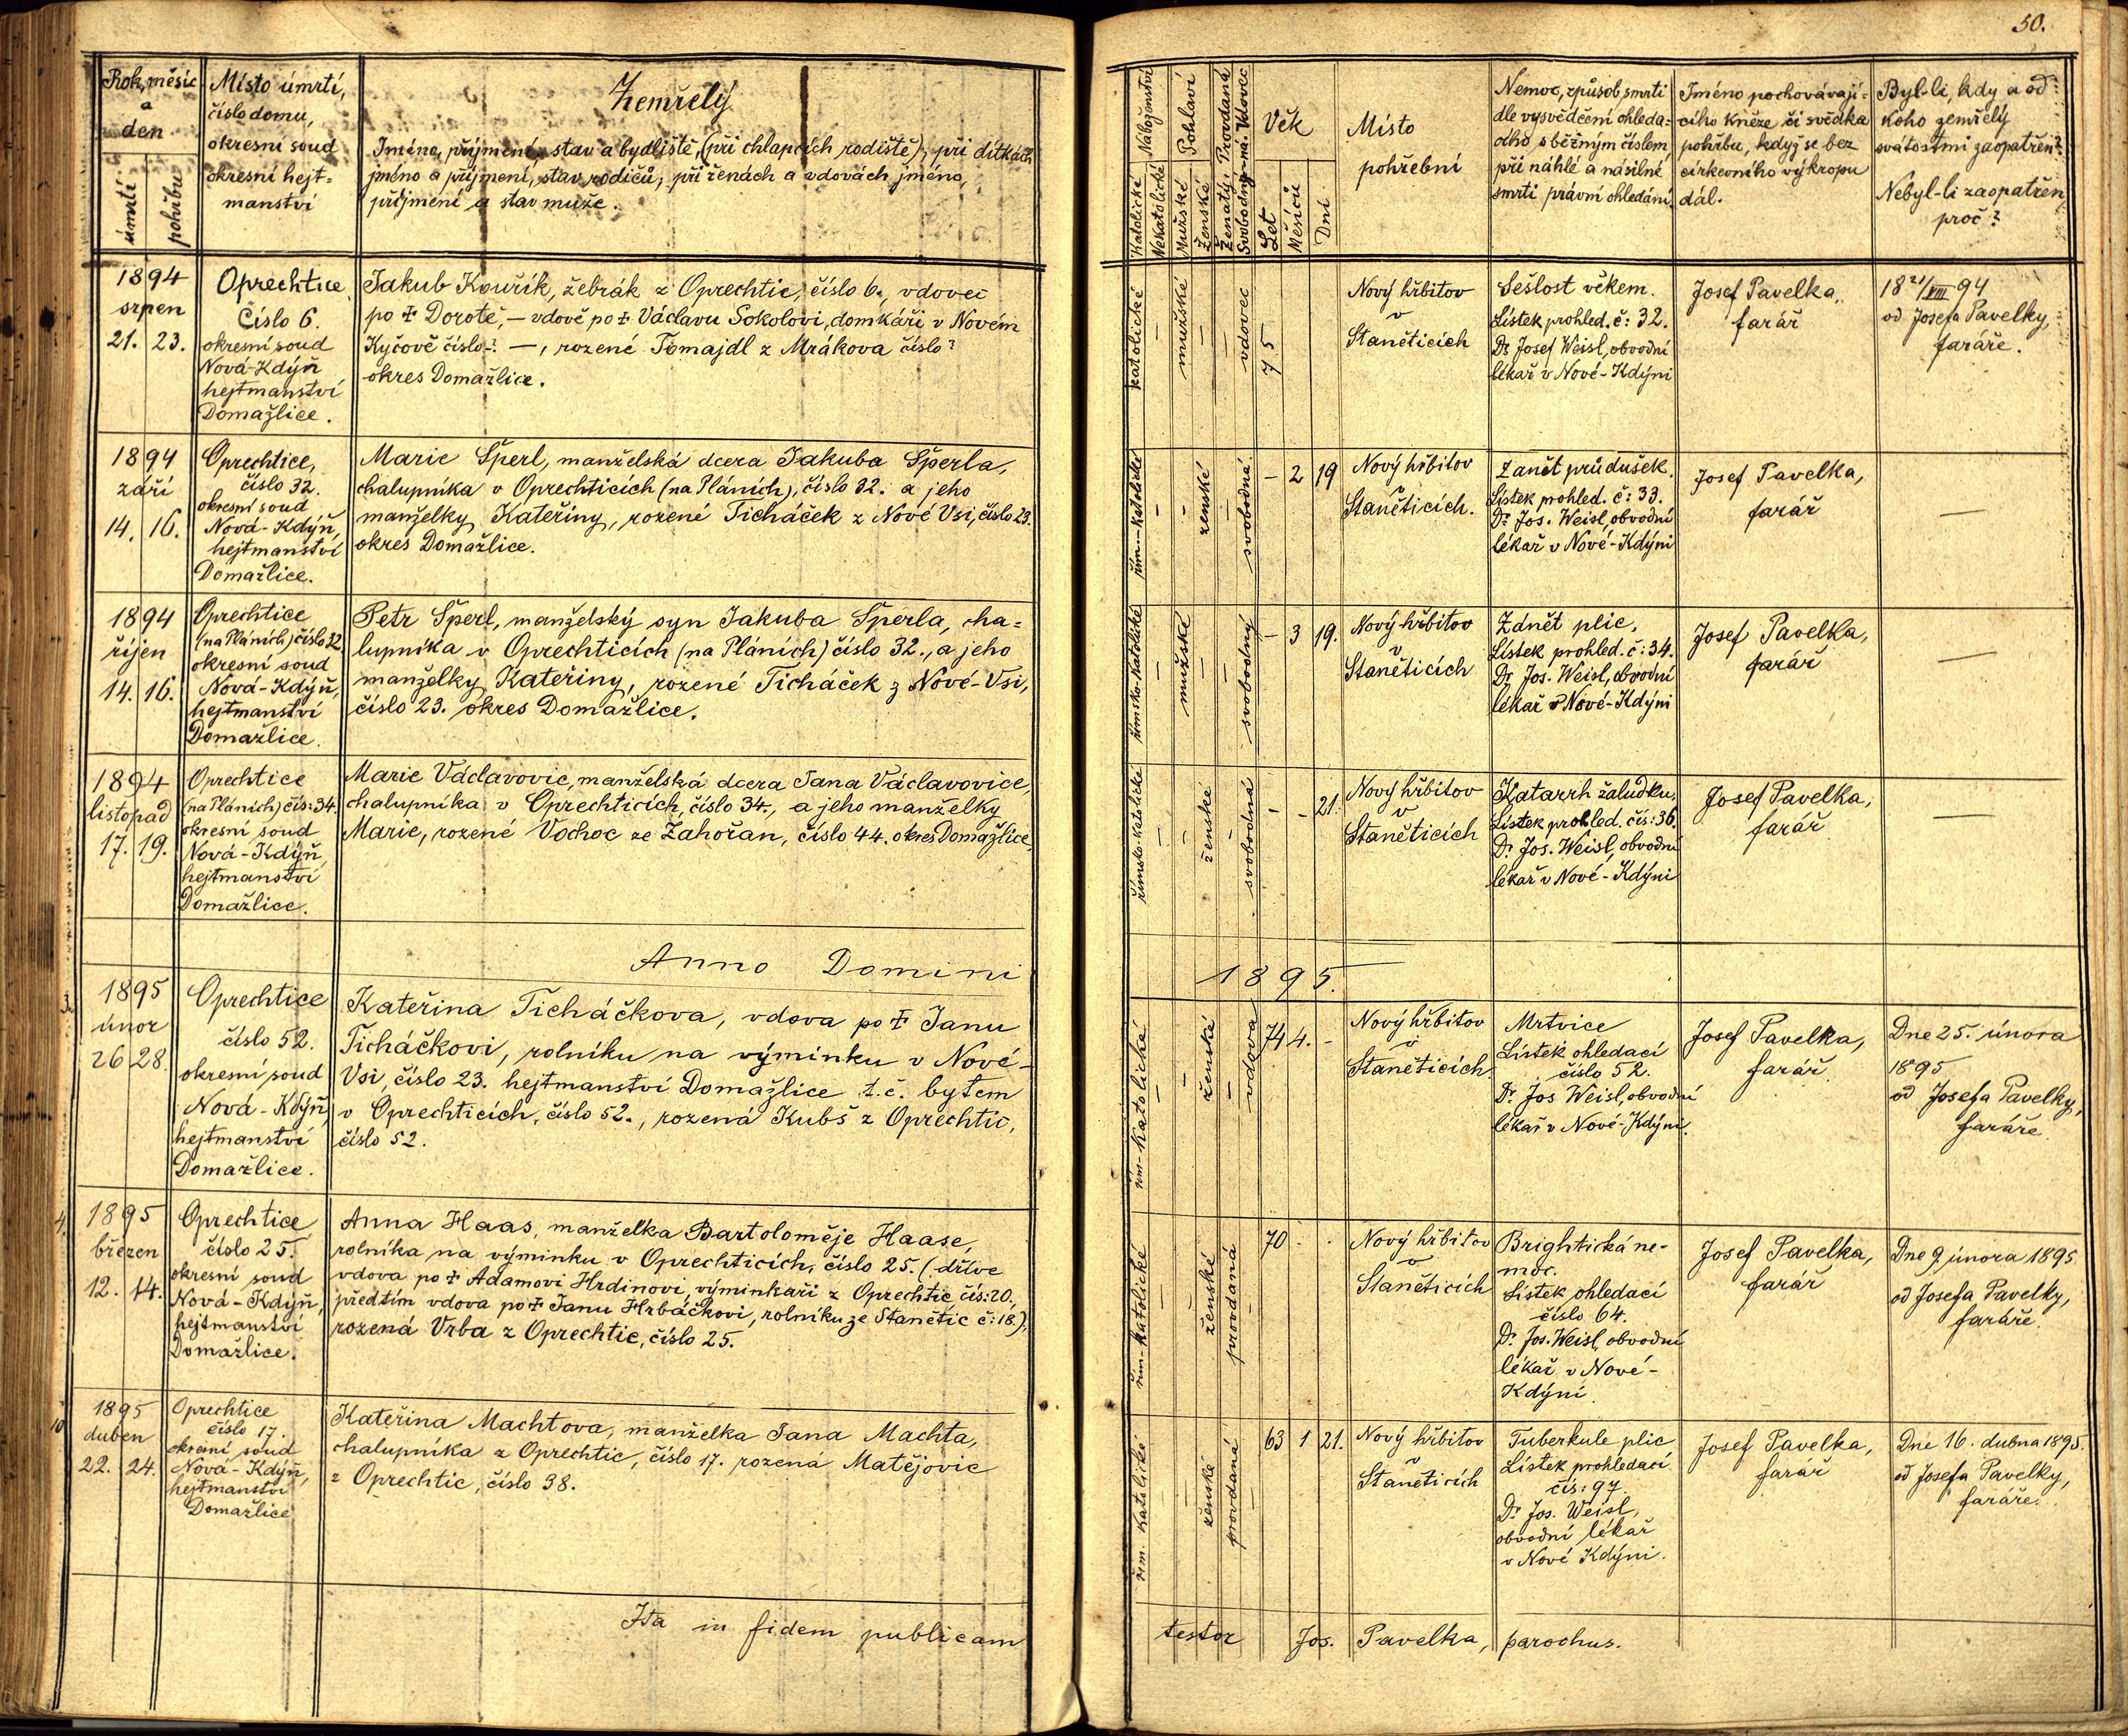 50.
Rok, měsíc
a
den
úmrtí
pohřbu
Místo úmrtí,
číslo domu,
okresní soud
okresní hejt=
manství
Zemřelý
Jméno, příjmení, stav a bydliště, (při chlapcích rodiště), při dítkách
jméno a příjmení, stav rodičů, při ženách a vdovách jméno,
příjmení a stav muže.
Náboženství
Katolické
Nekatolické
Pohlaví
Mužské
Ženské
Ženatý, Provdaná
Svobodný-ná. Vdovec
Věk
Let
Měsíců
Dní
Místo
pohřební
Nemoc, způsob smrti
dle vysvědčení ohleda=
cího s běžným číslem
při náhlé a násilné
smrti právní ohledání.
Jméno pochovávají=
cího kněze či svědka
pohřbu, když se bez
církevního výkropu
dál.
Byl-li, kdy a od
koho zemřelý
svátostmi zaopatřen?
Nebyl-li zaopatřen,
proč?
1894
srpen
21. 23.
Oprechtice
Číslo 6.
okresní soud
Nová-Kdýň
hejtmanství
Domažlice.
Jakub Kouřík, žebrák z Oprechtic, číslo 6., vdovec
po † Dorotě, — vdově po † Václavu Sokolovi, domkáři v Novém
Kyčově číslo-? —, rozené Tomajdl z Mrákova číslo?
okres Domažlice.
katolické
mužské
vdovec
75
Nový hřbitov
v
Staněticích
Sešlost věkem.
Lístek prohled. č: 32.
Dr Josef Weisl, obvodní
lékař v Nové-Kdýni
Josef Pavelka,
farář
18 21/VIII 94
od Josefa Pavelky,
faráře.
1894
září
14. 16.
Oprechtice,
číslo 32.
okresní soud
Nová-Kdýň,
hejtmanství
Domažlice.
Marie Šperl, manželská dcera Jakuba Šperla,
chalupníka v Oprechticích (na Pláních), číslo 32. a jeho
manželky Kateřiny, rozené Ticháček z Nové Vsi, číslo 23.
okres Domažlice.
řím.-katolické
ženské
svobodná
— 2 19
Nový hřbitov
v
Staněticích.
Zanět průdušek.
Lístek prohled. č: 33.
Dr Jos. Weisl, obvodní
lékař v Nové-Kdýni
Josef Pavelka,
farář
—
1894
říjen
14. 16.
Oprechtice
(na Pláních) číslo 32
okresní soud
Nová-Kdýň,
hejtmanství
Domažlice.
Petr Šperl, manželský syn Jakuba Šperla, cha=
lupníka v Oprechticích (na Pláních) číslo 32., a jeho
manželky Kateřiny, rozené Ticháček z Nové-Vsi,
číslo 23. okres Domažlice.
římsko-katolické
mužské
svobodný
— 3 19.
Nový hřbitov
v
Staněticích
Zánět plic,
Lístek prohled. č: 34.
Dr Jos. Weisl, obvodní
lékař v Nové-Kdýni
Josef Pavelka,
farář
—
1894
listopad
17. 19.
Oprechtice
(na Pláních) čís: 34.
okresní soud
Nová-Kdýň,
hejtmanství
Domažlice.
Marie Václavovic, manželská dcera Jana Václavovice,
chalupníka v Oprechticích, číslo 34., a jeho manželky
Marie, rozené Vochoc ze Zahořan, číslo 44. okres Domažlice,
římsko-katolické
ženské
svobodná
- - 21.
Nový hřbitov
v
Staněticích
Katarrh žaludku,
Lístek prohled. čís: 36.
Dr Jos. Weisl, obvodní
lékař v Nové-Kdýni
Josef Pavelka,
farář
—
Anno Domini
1895.
3.
1895
únor
26 28.
Oprechtice
číslo 52.
okresní soud
Nová-Kdýň,
hejtmanství
Domažlice.
Kateřina Ticháčkova, vdova po † Janu
Ticháčkovi, rolníku na výminku v Nové-
Vsi, číslo 23. hejtmanství Domažlice t.č. bytem
v Oprechticích, číslo 52., rozená Kubš z Oprechtic,
číslo 52.
řím-katolická
ženská
vdova
74 4. -
Nový hřbitov
v
Staněticích.
Mrtvice
Lístek ohledací
číslo 52.
Dr Jos Weisl, obvodní
lékař v Nové-Kdýni.
Josef Pavelka,
farář.
Dne 25. února
1895
od Josefa Pavelky,
faráře.
4.
1895
březen
12. 14.
Oprechtice
číslo 25.
okresní soud
Nová-Kdýň,
hejtmanství
Domažlice.
Anna Haas, manželka Bartoloměje Haase,
rolníka na výminku v Oprechticích, číslo 25. (dříve
vdova po † Adamovi Hrdinovi, výminkáři z Oprechtic čís: 20.,
předtím vdova po † Janu Hrbáčkovi, rolníku ze Stanětic č: 18.),
rozená Vrba z Oprechtic, číslo 25.
řím-katolické
ženské
provdaná
70 . .
Nový hřbitov
v
Staněticích
Brightická ne-
moc.
Lístek ohledací
číslo 64.
Dr Jos. Weisl, obvodní
lékař v Nové-
Kdýni.
Josef Pavelka,
farář
Dne 9. února 1895
od Josefa Pavelky,
faráře.
10
1895
duben
22. 24.
Oprechtice
číslo 17.
okresní soud
Nová-Kdýň,
hejtmanství
Domažlice
Kateřina Machtova, manželka Jana Machta,
chalupníka z Oprechtic, číslo 17. rozená Matějovic
z Oprechtic, číslo 38.
řím. katolické
ženské
provdaná
63 1 21.
Nový hřbitov
v
Staněticích
Tuberkule plic
Lístek prohledací
čís: 97.
Dr Jos. Weisl,
obvodní lékař
v Nové Kdýni.
Josef Pavelka,
farář
Dne 16. dubna 1895.
od Josefa Pavelky,
faráře.
Ita in fidem publicam
testor Jos. Pavelka, parochus.